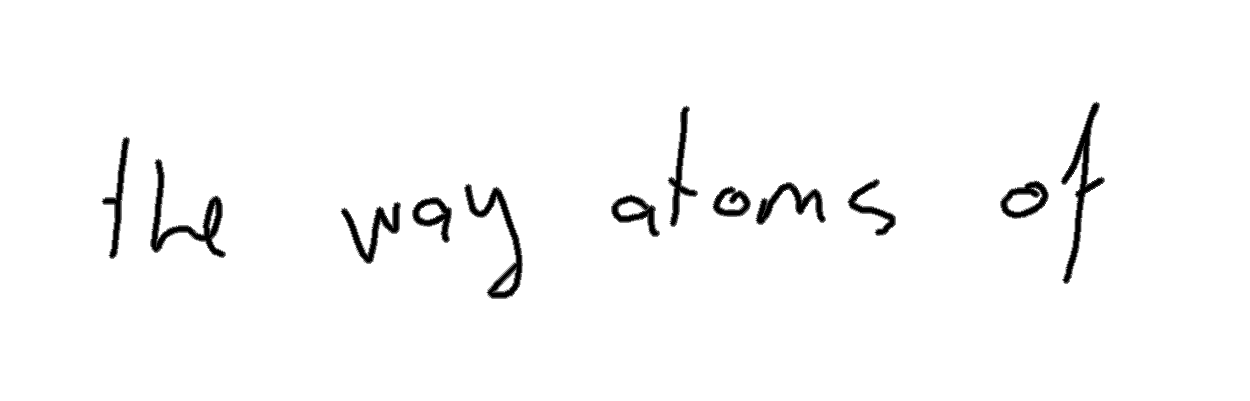 the way atoms of